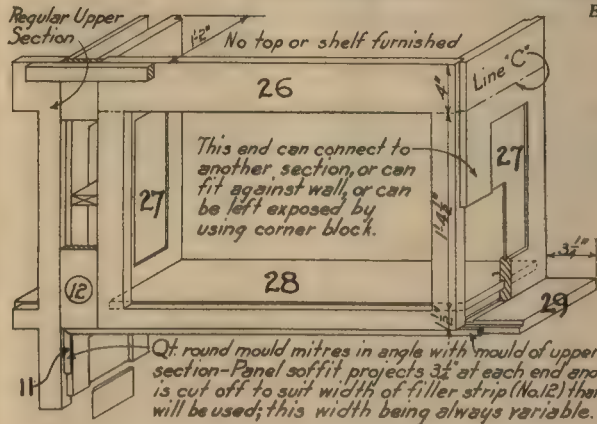 Regular Upper
Section
1'-2"
No top or shelf furnished
E
26
4"
Line "C"
This end can connect to
another section, or can
fit against wall, or can
be left exposed by
using corner block.
27
27
28
12
29
11
Qt. round mould mitres in angle with mould of upper
section-Panel soffit projects 3¼" at each end and
is cut off to suit width of filler strip (No.12) that
will be used; this width being always variable.